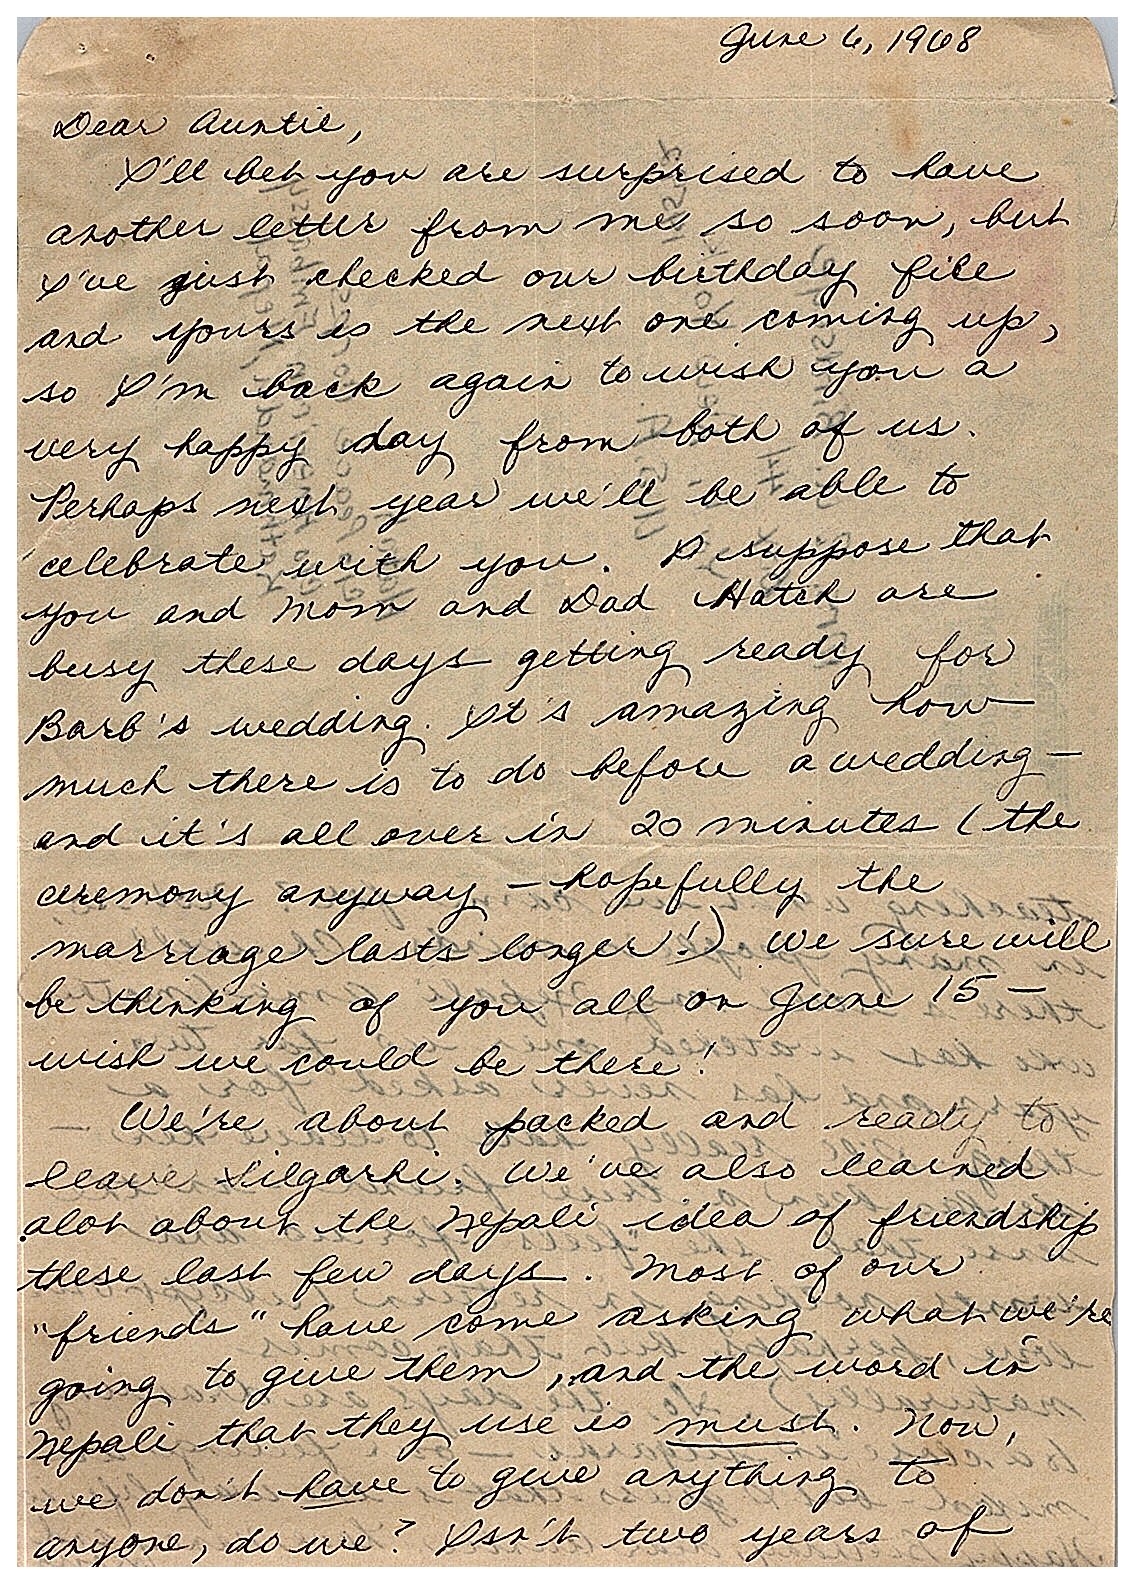 June 6, 1968
Dear Auntie,
I'll bet you are surprised to have
another letter from me so soon, but
I've just checked our birthday file
and yours is the next one coming up,
so I'm back again to wish you a
very happy day from both of us.
Perhaps next year we'll be able to
celebrate with you. I suppose that
you and Mom and Dad Hatch are
busy these days getting ready for
Barb's wedding. It's amazing how
much there is to do before a wedding —
and it's all over in 20 minutes (the
ceremony anyway — hopefully the
marriage lasts longer!) We sure will
be thinking of you all on June 15 —
wish we could be there!
We're about packed and ready to
leave Silgarhi. We've also learned
alot about the Nepali idea of friendship
these last few days. Most of our
"friends" have come asking what we're
going to give them, and the word in
Nepali that they use is must. Now,
we don't have to give anything to
anyone, do we? Isn't two years of